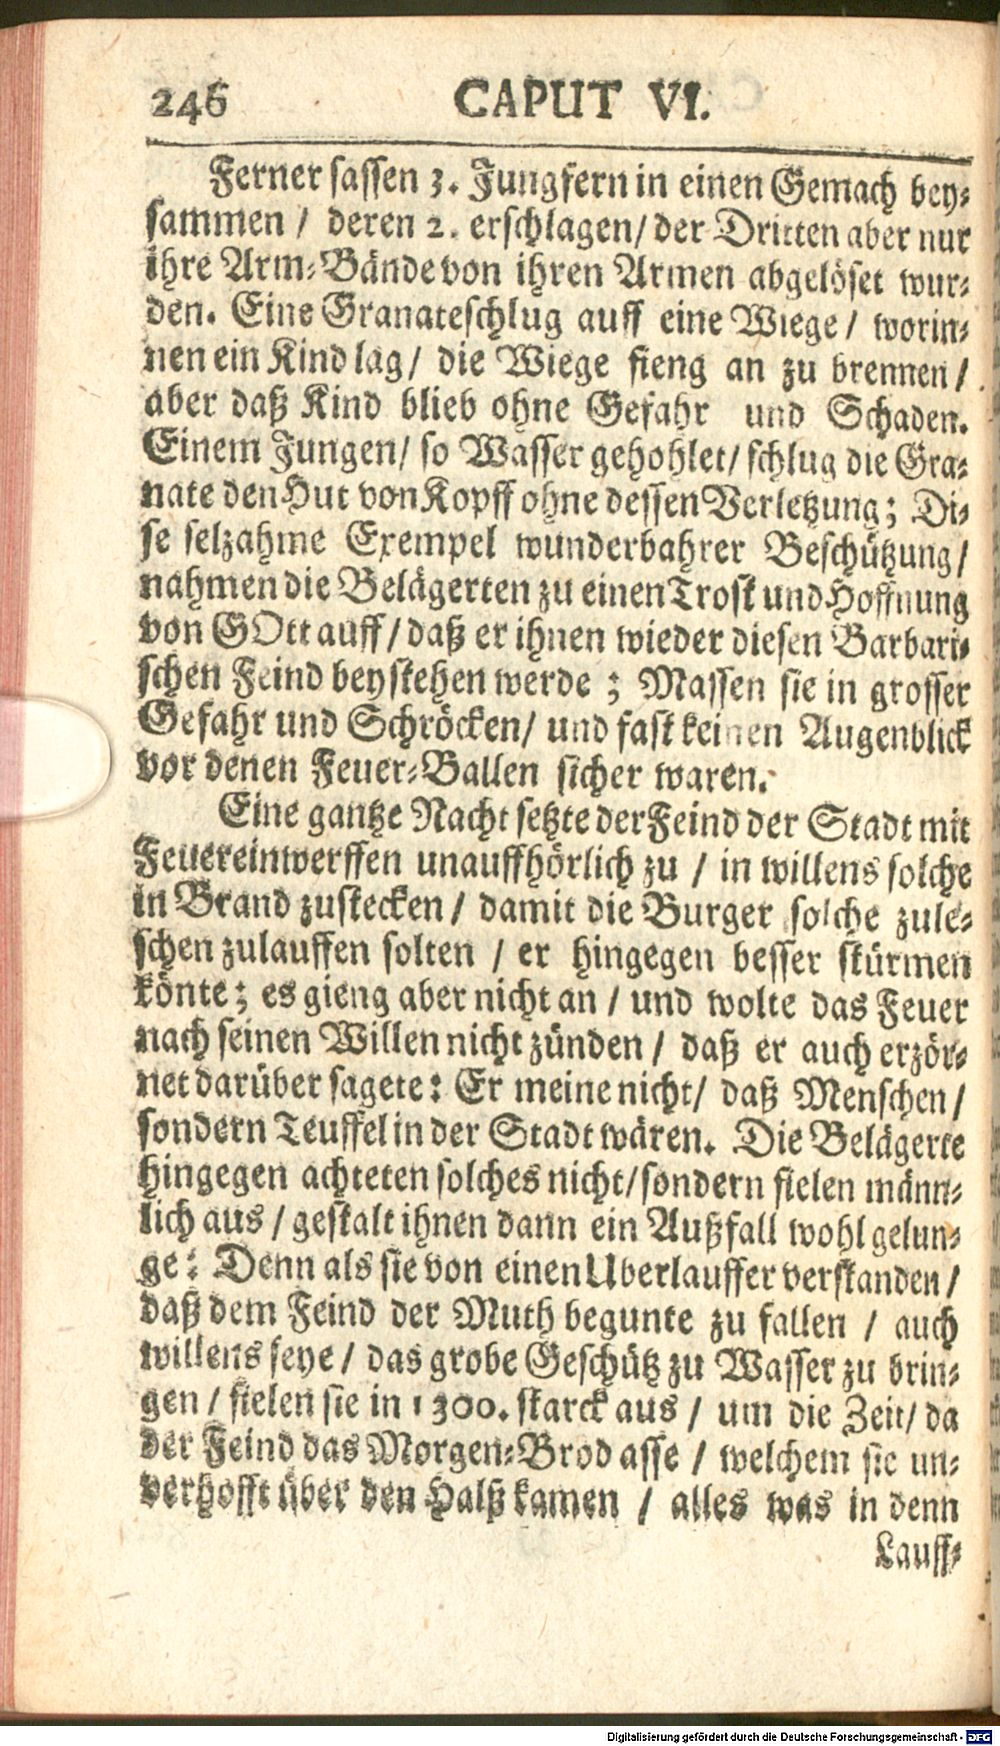 246 CAPUT VI.
Ferner sassen 3. Jungfern in einen Gemach bey-
sammen / deren 2. erschlagen / der Dritten aber nur
ihre Arm-Bände von ihren Armen abgelöset wur-
den. Eine Granate schlug auff eine Wiege / worin-
nen ein Kind lag / die Wiege fieng an zu brennen /
aber daß Kind blieb ohne Gefahr und Schaden.
Einem Jungen / so Wasser gehohlet / schlug die Gra-
nate den Hut von Kopff ohne dessen Verletzung; Di-
se selzahme Exempel wunderbahrer Beschützung /
nahmen die Belägerten zu einen Trost und Hoffnung
von GOtt auff / daß er ihnen wieder diesen Barbari-
schen Feind beystehen werde ; Massen sie in grosser
Gefahr und Schröcken / und fast keinen Augenblick
vor denen Feuer-Ballen sicher waren.
Eine gantze Nacht setzte der Feind der Stadt mit
Feuereinwerffen unauffhörlich zu / in willens solche
in Brand zustecken / damit die Burger solche zule-
schen zulauffen solten / er hingegen besser stürmen
könte; es gieng aber nicht an / und wolte das Feuer
nach seinen Willen nicht zünden / daß er auch erzör-
net darüber sagete: Er meine nicht / daß Menschen /
sondern Teuffel in der Stadt wären. Die Belägerte
hingegen achteten solches nicht / sondern fielen männ-
lich aus / gestalt ihnen dann ein Außfall wohl gelun-
ge: Denn als sie von einen Uberlauffer verstanden /
daß dem Feind der Muth begunte zu fallen / auch
willens seye / das grobe Geschütz zu Wasser zu brin-
gen / fielen sie in 1300. starck aus / um die Zeit / da
der Feind das Morgen-Brod asse / welchem sie un-
verhofft über den Halß kamen / alles was in denn
Lauff-
Digitalisierung gefördert durch die Deutsche Forschungsgemeinschaft - DFG